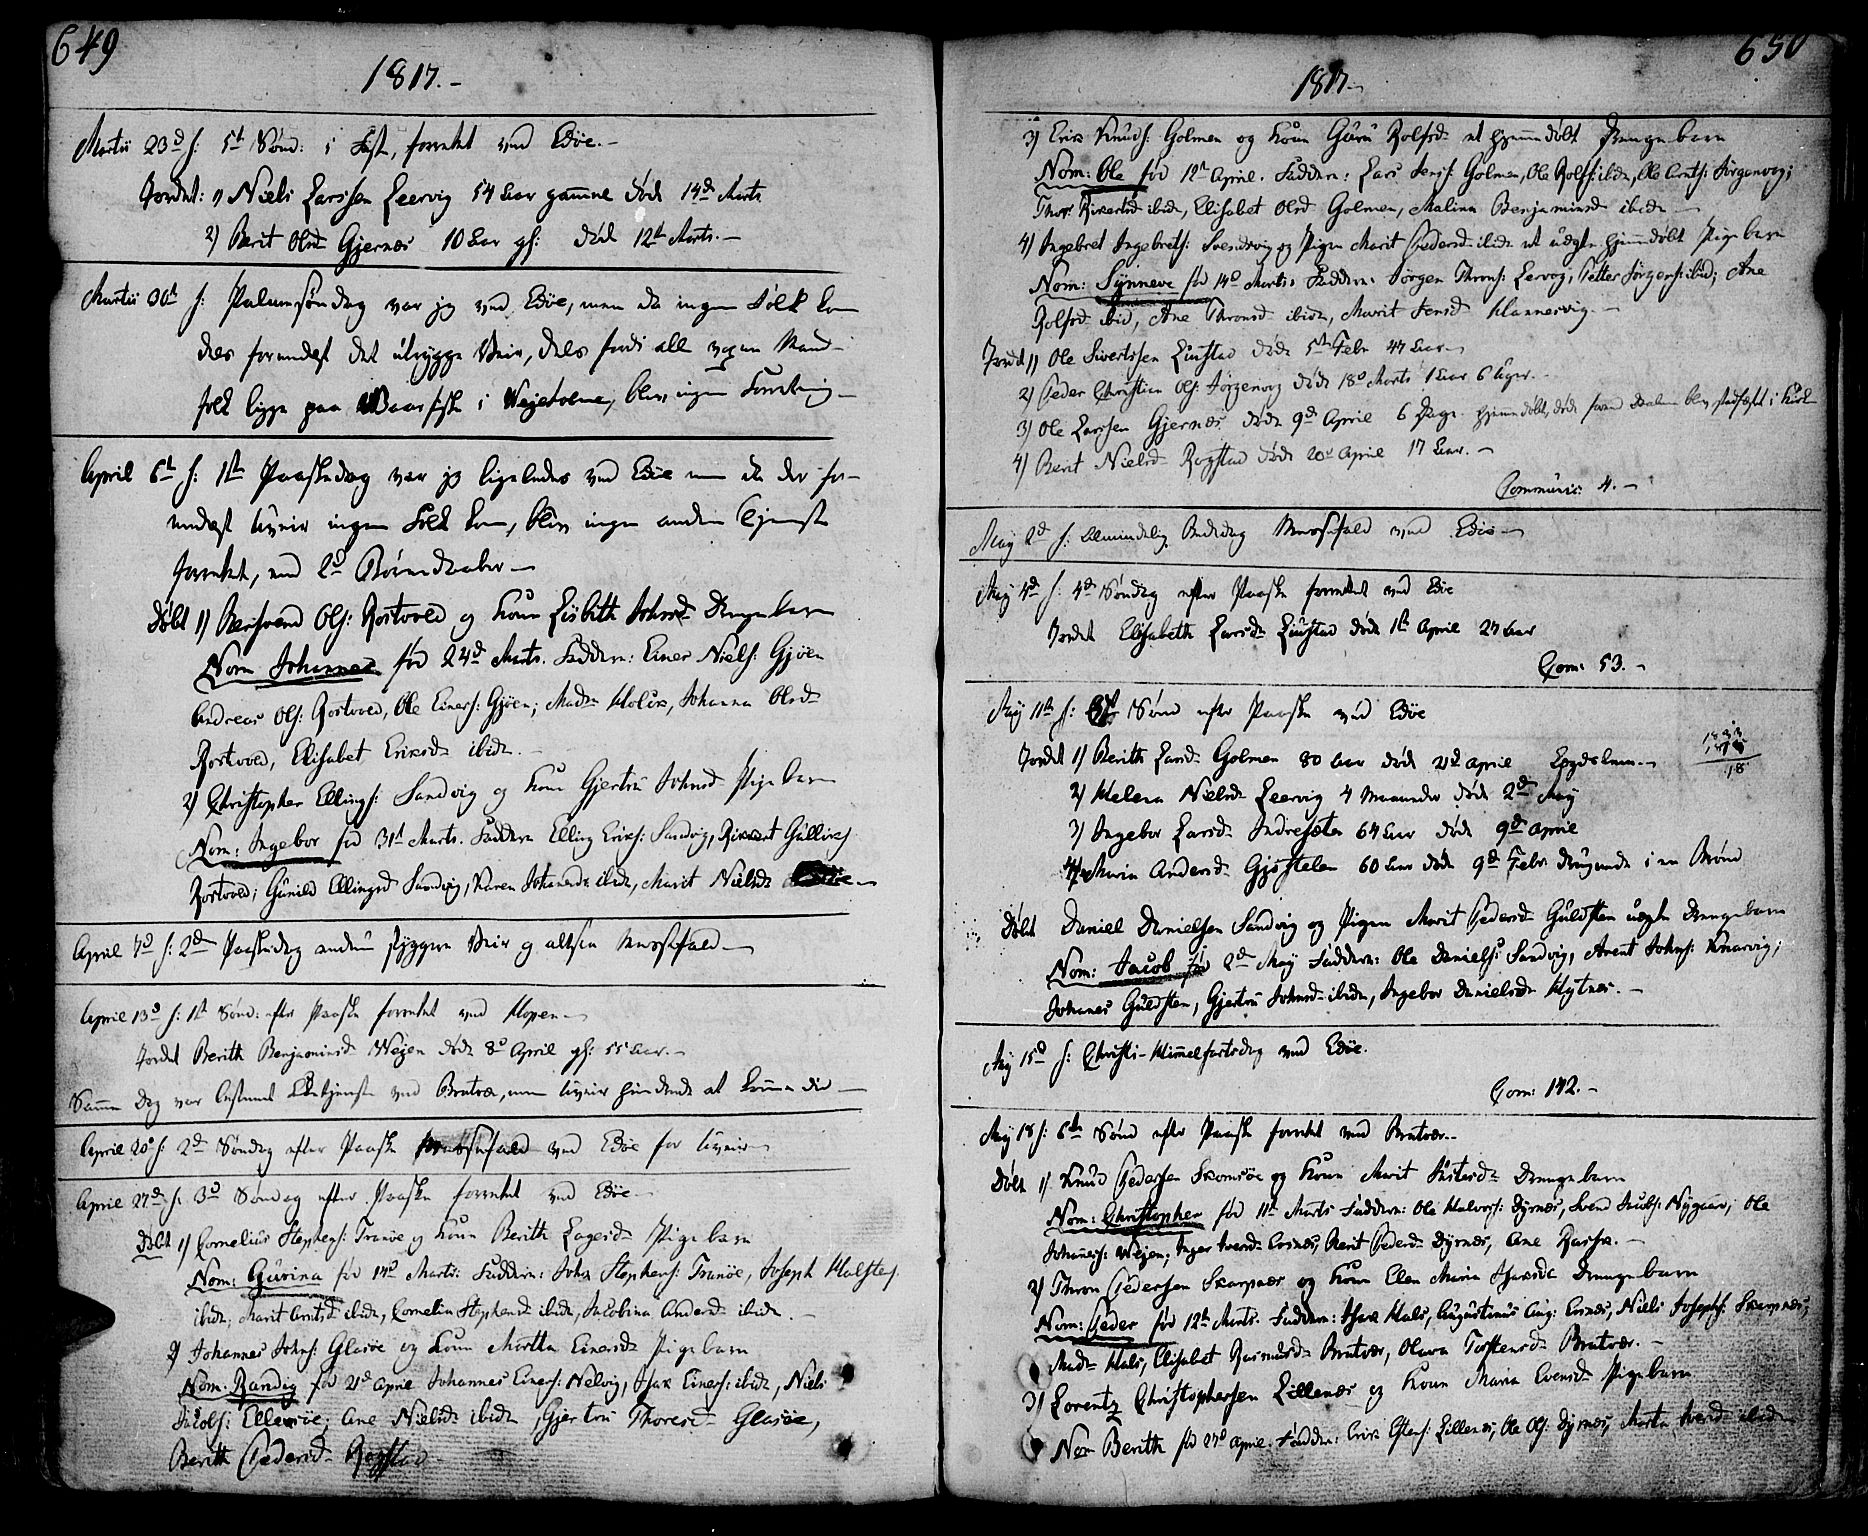 649
1817.-
Martii 23d f: 5t Sønd: i Fast, forrettet ved Edøe.-
Jordet: 1) Niels Larssen Leervig 54 Aar gamme død 14d Marts
2) Berit Olsd Gjernæs 10 Aar gl: død 12t Marts.-
Martii 30t f: Palmesøndag var jeg ved Edøe, men da ingen Folk kom
dels formedelst det utrygge Veir, dels fordi all vogen Mand-
folk ligge paa Vaarfiske i Vejeholme, blev ingen Forretning-
April 6t f: 1t Paaskedag var jeg ligeledes ved Edøe men da der for-
medelst Uveir ingen Folk kom, blev ingen anden Tjeneste
forrettet, end 2d Børnedaaber-
Døbt 1) Bersvend Ols: Rostvold og Kone Lisbeth Johnsd Drengebarn
Nom Johannes fød 24d Marts. Faddere: Einer Niels: Gjøen
Andreas Ols: Rostvold, Ole Einers: Gjøen; Mad Holck, Johanna Olsd
Rostvold, Elisabet Eriksd ibid.-
2) Christopher Ellings: Sandvig og Kone Gjertru Johnsd Pigebarn
Nom: Ingebor fød 31t Marts. Faddere Elling Eriks: Sandvig, Rikkert Gullics
Rostvold; Gunild Ellingsd Sandvig, Karen Johansd ibid, Marit Nielsd
April 7d f: 2d Paaskedag endnu styggere Veir og altsaa Messefald-
April 13d f: 1t Sønd: efter Paaske forrettet ved Hopen-
Jordet Berith Benjaminsd Wejen død 8d April gl: 55 Aar.-
Samme Dag var bestemt Aftentjeneste ved Bratvær, men Uveir hindrede at komme did-
April 20d f: 2d Søndag efter Paaske Messefald ved Edøe for Uveir-
April 27d f: 3d Søndag efter Paaske forrettet ved Edøe-
Døbt 1) Cornelius Stephens: Tranøe og Kone Berith Lagesd Pigebarn
Nom: Gurina fød 14d Marts: Faddere: John Stephens: Tranøe, Joseph Halstes
ibid, Marit Arntsd ibid, Cornelia Stephensd ibid, Jacobina Andersd ibid.
2) Johannes Johns: Glasøe og Kone Martha Einersd Pigebarn
Nom: Randig fød 21d April Johannes Einers: Nelvig, Isax Einers: ibid, Niels
Jacobs: Ellenøe; Ane Nielsd ibid, Gjertru Thoresd Glasøe,
Berith Pedersd Rogstad
650
1817.-
3) Erik Knuds: Golmen og Kone Guru Rolfsd et hjemmedøbt Drengebarn
Nom: Ole fød 12t April. Faddere: Lars Jens: Golmen, Ole Rolfs: ibid, Ole Arnts: Jørgenvog;
Thor: Rikertsd ibid, Elisabet Olsd Golmen, Malina Benjaminsd ibid-
4) Ingebret Ingebrets: Svendsvig og Pigen Marit Pedersd ibid et uægte hjemmedøbt Pigebarn
Nom: Synneve fød 14d Marts. Faddere: Jørgen Throns: Lervog, Petter Jørgens: ibid; Ane
Rolfsd ibid, Ane Thronsd ibid, Marit Jensd Hamnervig.-
Jordet 1) Ole Sivertssen Linstad død 5t Febr 47 Aar-
2) Peder Christian Ols: Jørgenvog død 18d Marts 1 Aar 6 Uger.-
3) Ole Larssen Gjernæs død 9d April 6 Dage hjemmedøbt, død førend Daaben blev stadfæstet i Kirk
4) Berit Nielsd Rogstad død 20d April 17 Aar.-
Communic: 4.-
May 2d f: Almindelig Bededag Messefald ved Edøe-
May 4d f: 4d Søndag efter Paaske forrettet ved Edøe
Jordet Elisabeth Larsd Linstad død 1t April 27 Aar
Com: 53.-
May 11t f: 5t Sønd efter Paaske ved Edøe
Jordet 1) Berith Larsd Golmen 80 Aar død 21d April Lægdslem-
2) Helena Nielsd Leervig 4 Maaneder død 2d May
3) Ingebor Larsd Indresæter 64 Aar død 9d April
4) Maria Andersd Gjøstelen 60 Aar død 9d Febr druknede i en Brønd
Døbt Daniel Danielssen Sandvig og Pigen Marit Pedersd Guldsten uægte Drengebarn
Nom: Jacob fød 2d May Faddere: Ole Daniels: Sandvig, Arent Johns: Knarvig;
Johanes Guldsten, Gjertru Johnsd ibid, Ingebor Danielsd Hytnes.-
May 15d f: Christi-Himmelfartsdag ved Edøe.
Com: 142.-
May 18 f: 6te Sønd efter Paaske forrettet ved Bratvær.-
Døbt 1) Knud Pedersen Skomsøe og Kone Marit Listersd Drengebarn
Nom: Christopher fød 11t Marts Faddere: Ole Halvors: Dyrnæs, Svend Jacobs: Nygaar, Ole
Johans: Wejen; Inger Iversd Cornæs, Berit Pedersd Dyrnæs, Ane
2) Thron Pedersen Skarpnæs og Kone Elen Maria Isaksd Drengebarn
Nom: Peder fød 12t Marts. Faddere: Isax Hals, Augustinus Aug: Cornæs, Niels Josephs: Skarpnæs;
Mad Hals, Elisabet Rasmusd Bratvær, Olava Torstensd Bratvær.-
3) Lorentz Christophersen Lillenæs og Kone Maria Evensd Pigebarn
Nom Berith fød 27d April. Faddere: Erik Estens: Lillenæs, Ole Ols: Dyrnæs, Marta Iversd ibid